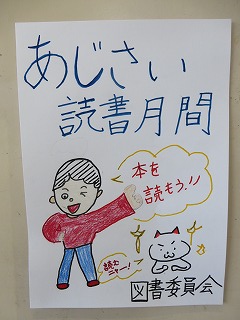 あじさい
読書月間
本を
読もう!!
読むニャー!
図書委員会